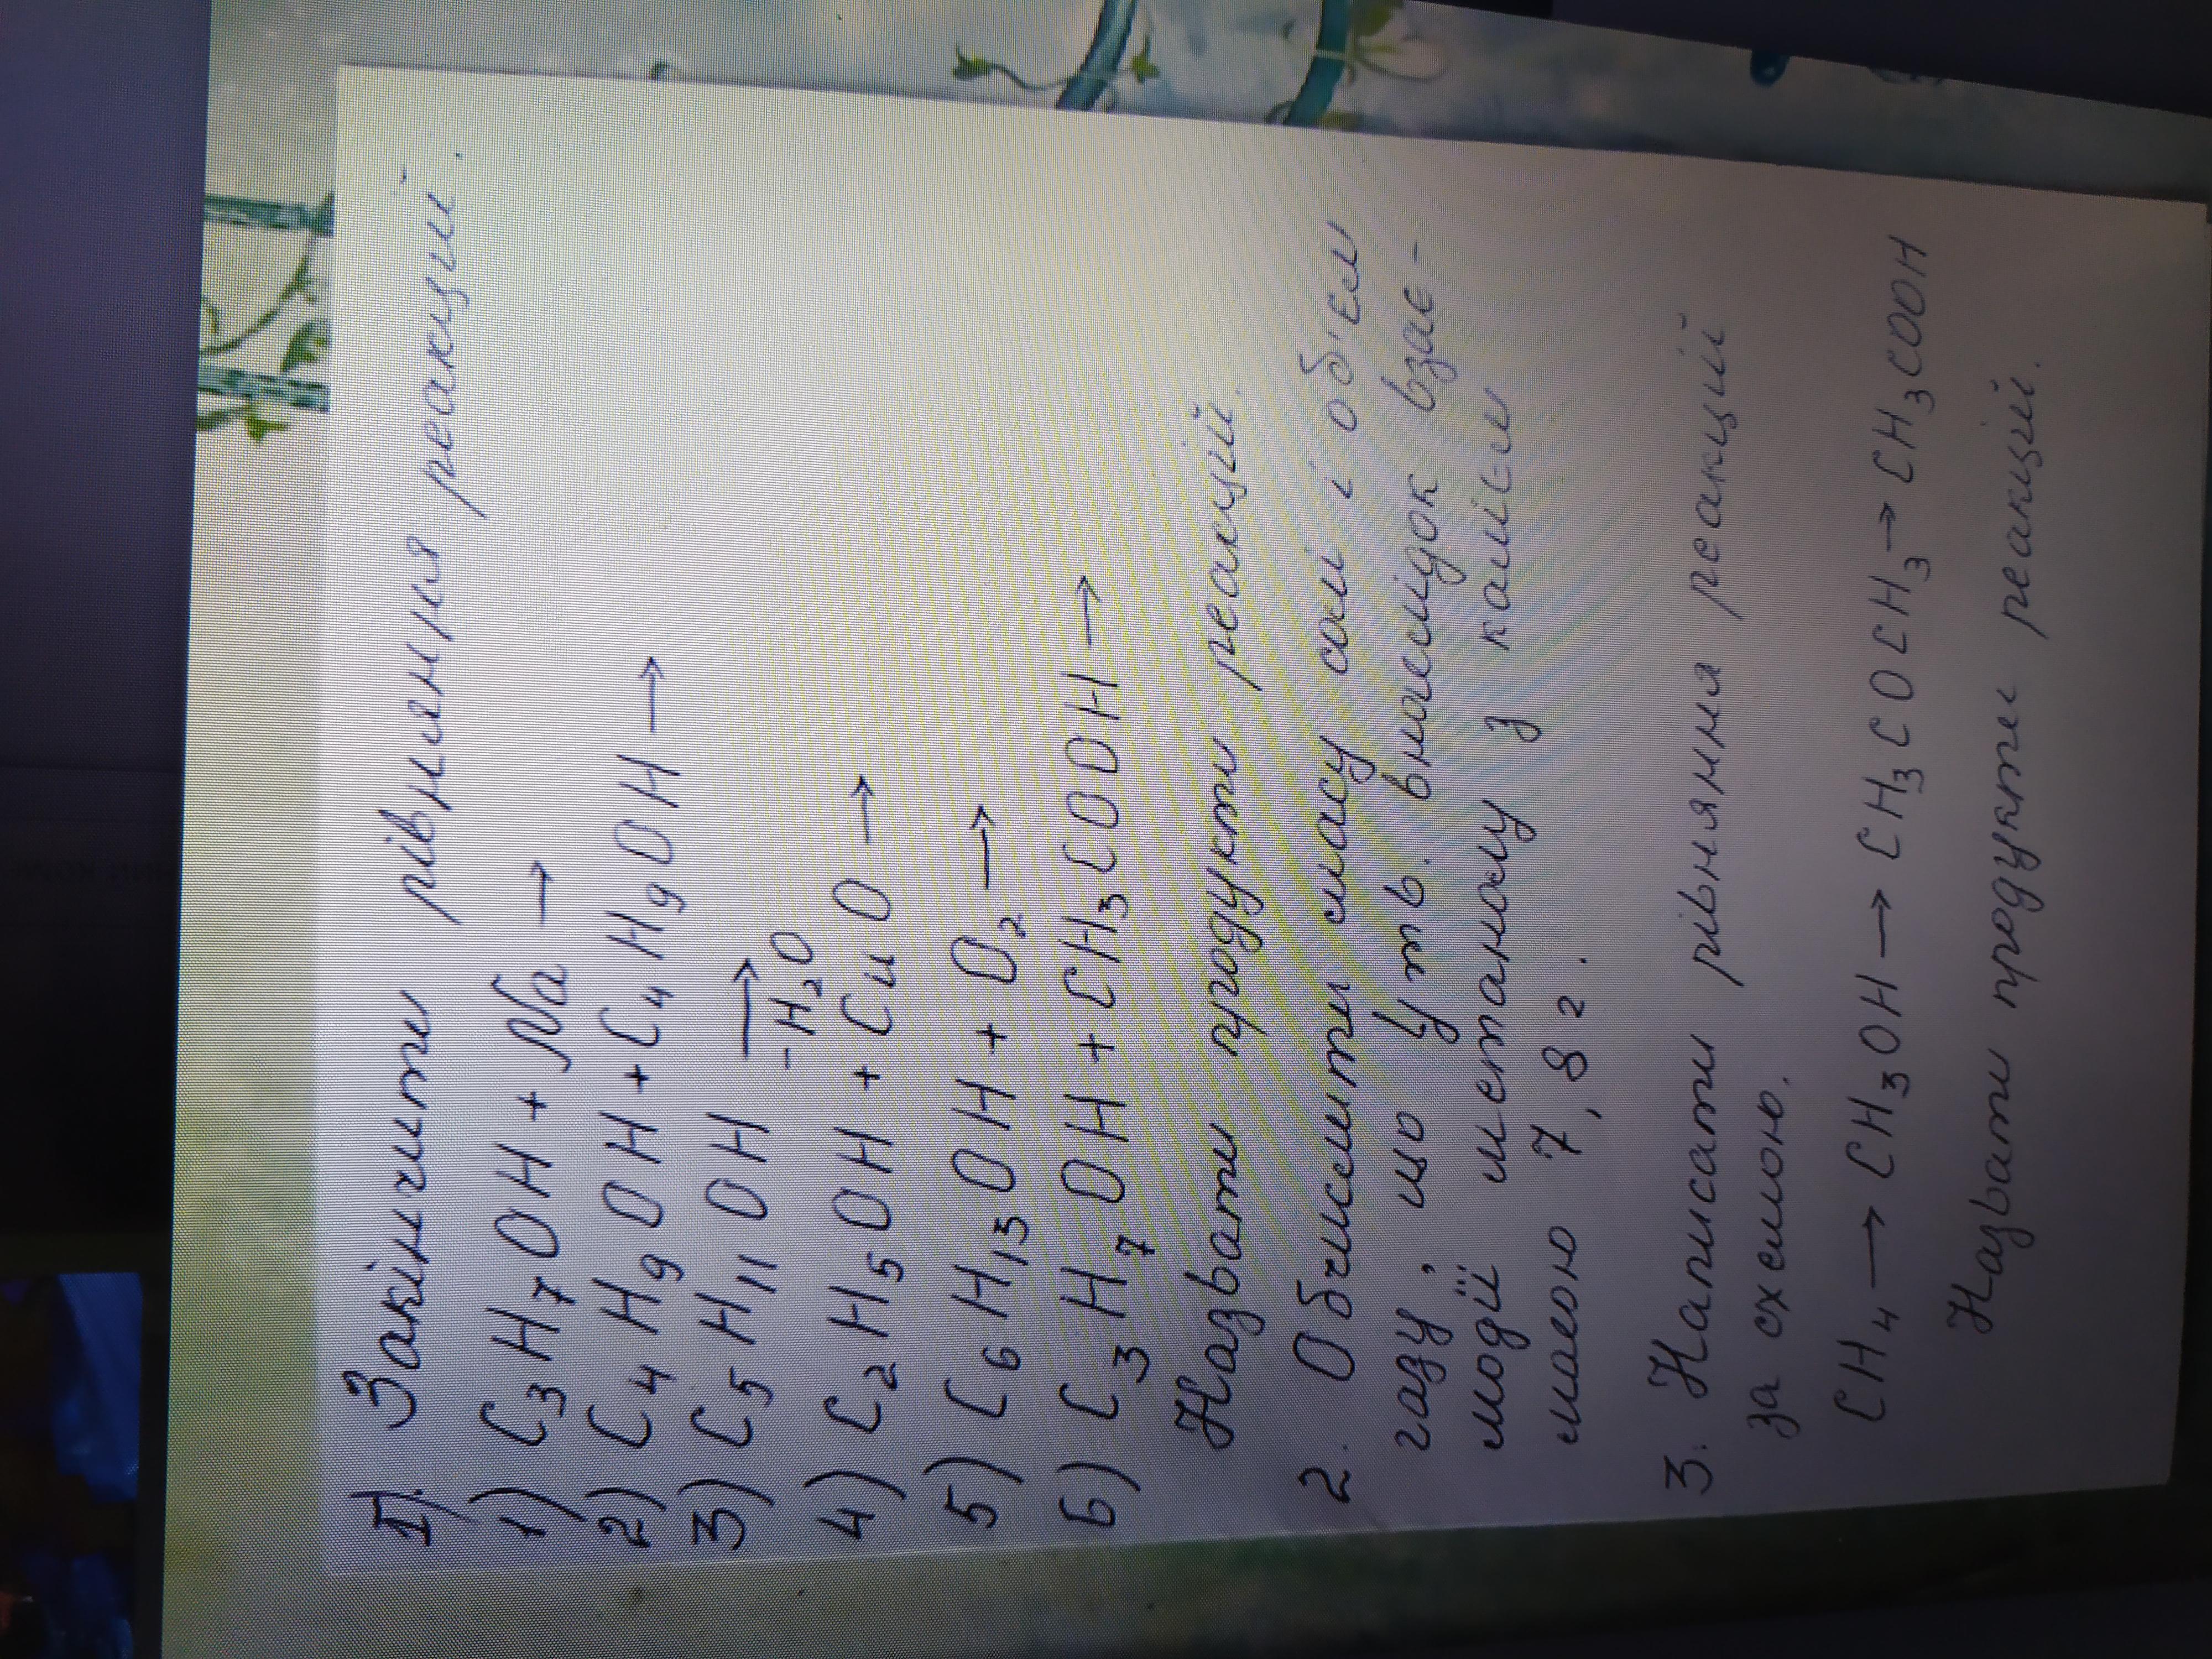 I). Закінчити рівняння реакцій.
1) C₃H₇OH + Na →
2) C₄H₉OH + C₄H₉OH →
3) C₅H₁₁OH →
-H₂O
4) C₂H₅OH + CuO →
5) C₆H₁₃OH + O₂ →
6) C₃H₇OH + CH₃COOH →
Назвати продукти реакцій.
2. Обчислити масу солі і об'єм
газу, що утв. внаслідок взає-
модії метанолу з калієм
масою 7,8 г.
3. Написати рівняння реакцій
за схемою.
CH₄ → CH₃OH → CH₃COCH₃ → CH₃COOH
Назвати продукти реакцій.